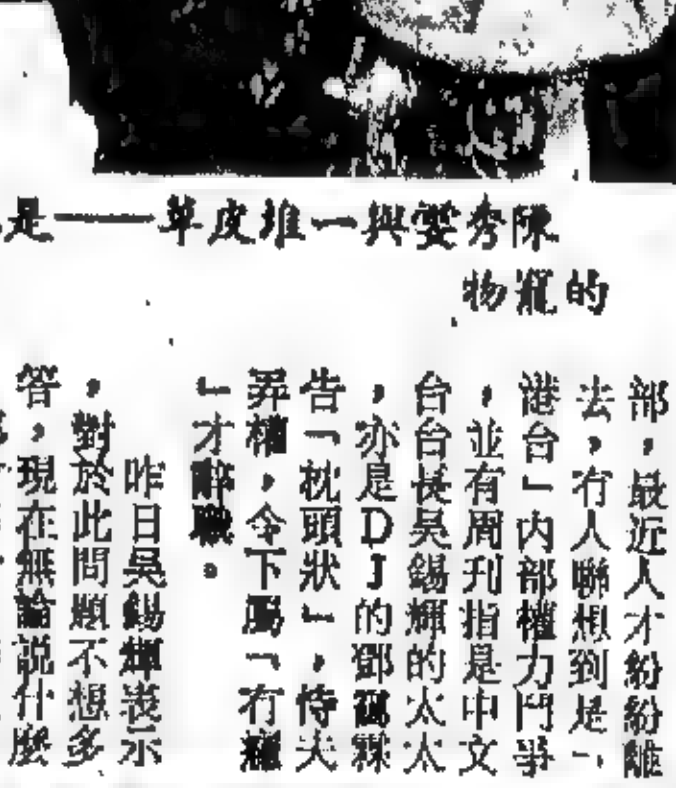 陳秀雯與一堆皮革——是
的寵物
部，最近人才紛紛離
去，有人聯想到是「
港台」內部權力鬥爭
，並有周刊指是中文
台台長吳錫輝的太太
，亦是DJ的鄧藹霖
告「枕頭狀」，恃夫
弄權，令下屬「有
」才辭職。
昨日吳錫輝表示
，對於此問題不想多
答，現在無論說什麼